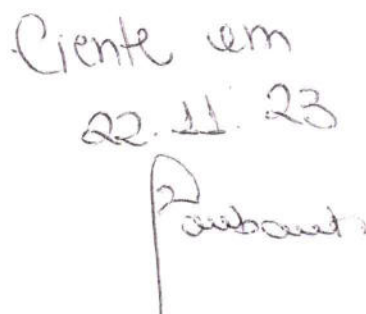 Ciente em
22.11.23